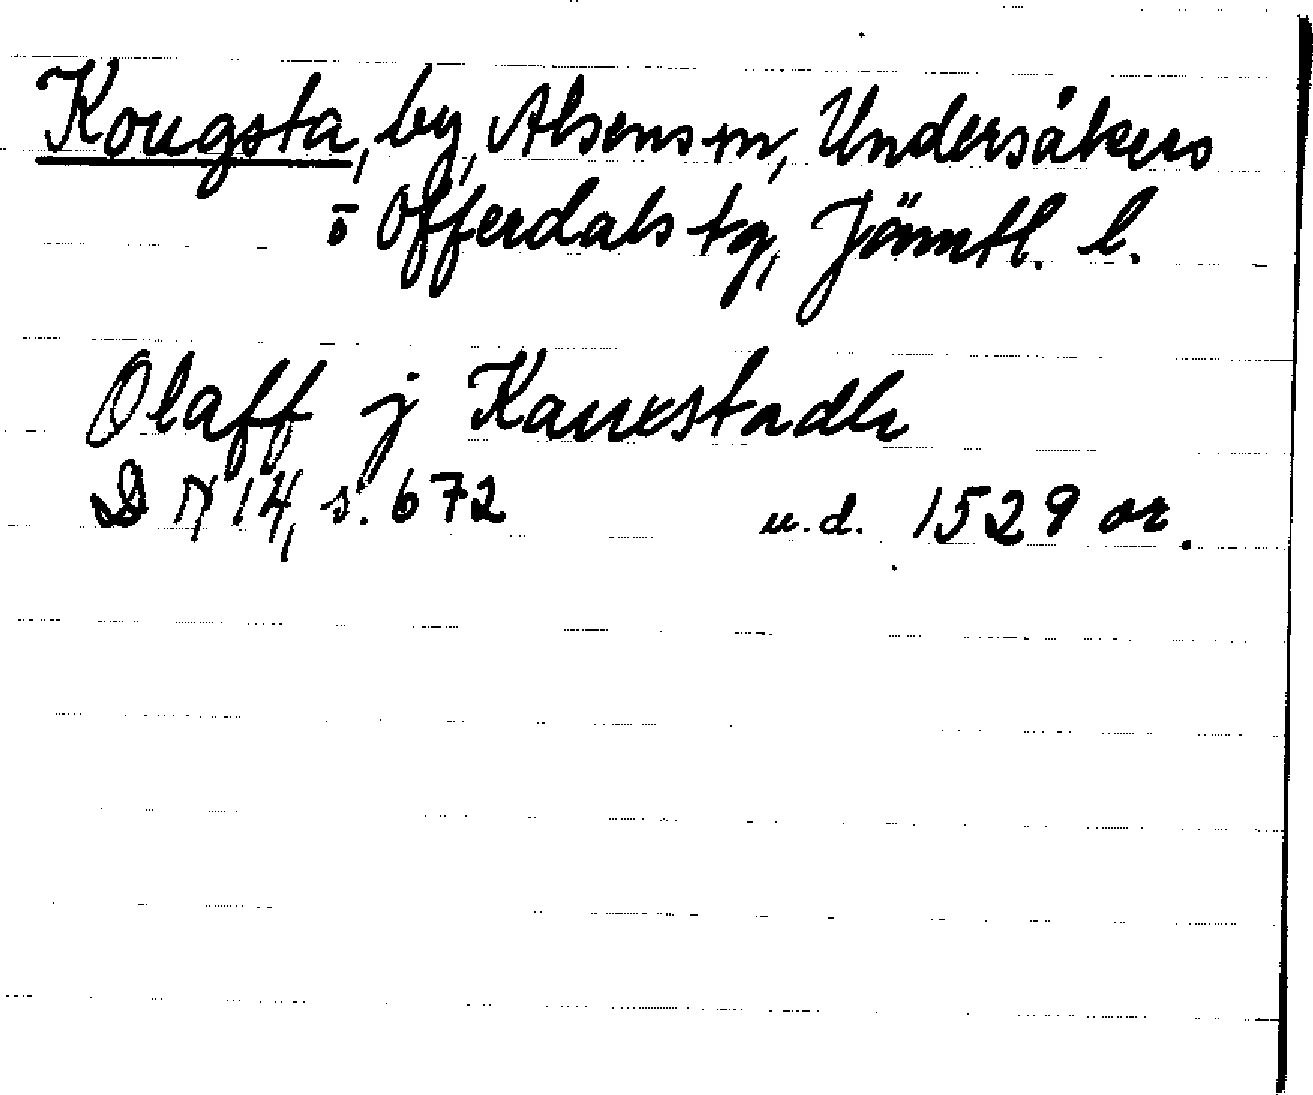 Kougsta, by, Alsens sn, Undersåkers
o Offerdals tg, Jämtl. l.
Olaff j Kauestadh
DN 14, s. 672 u.d. 1529 or.